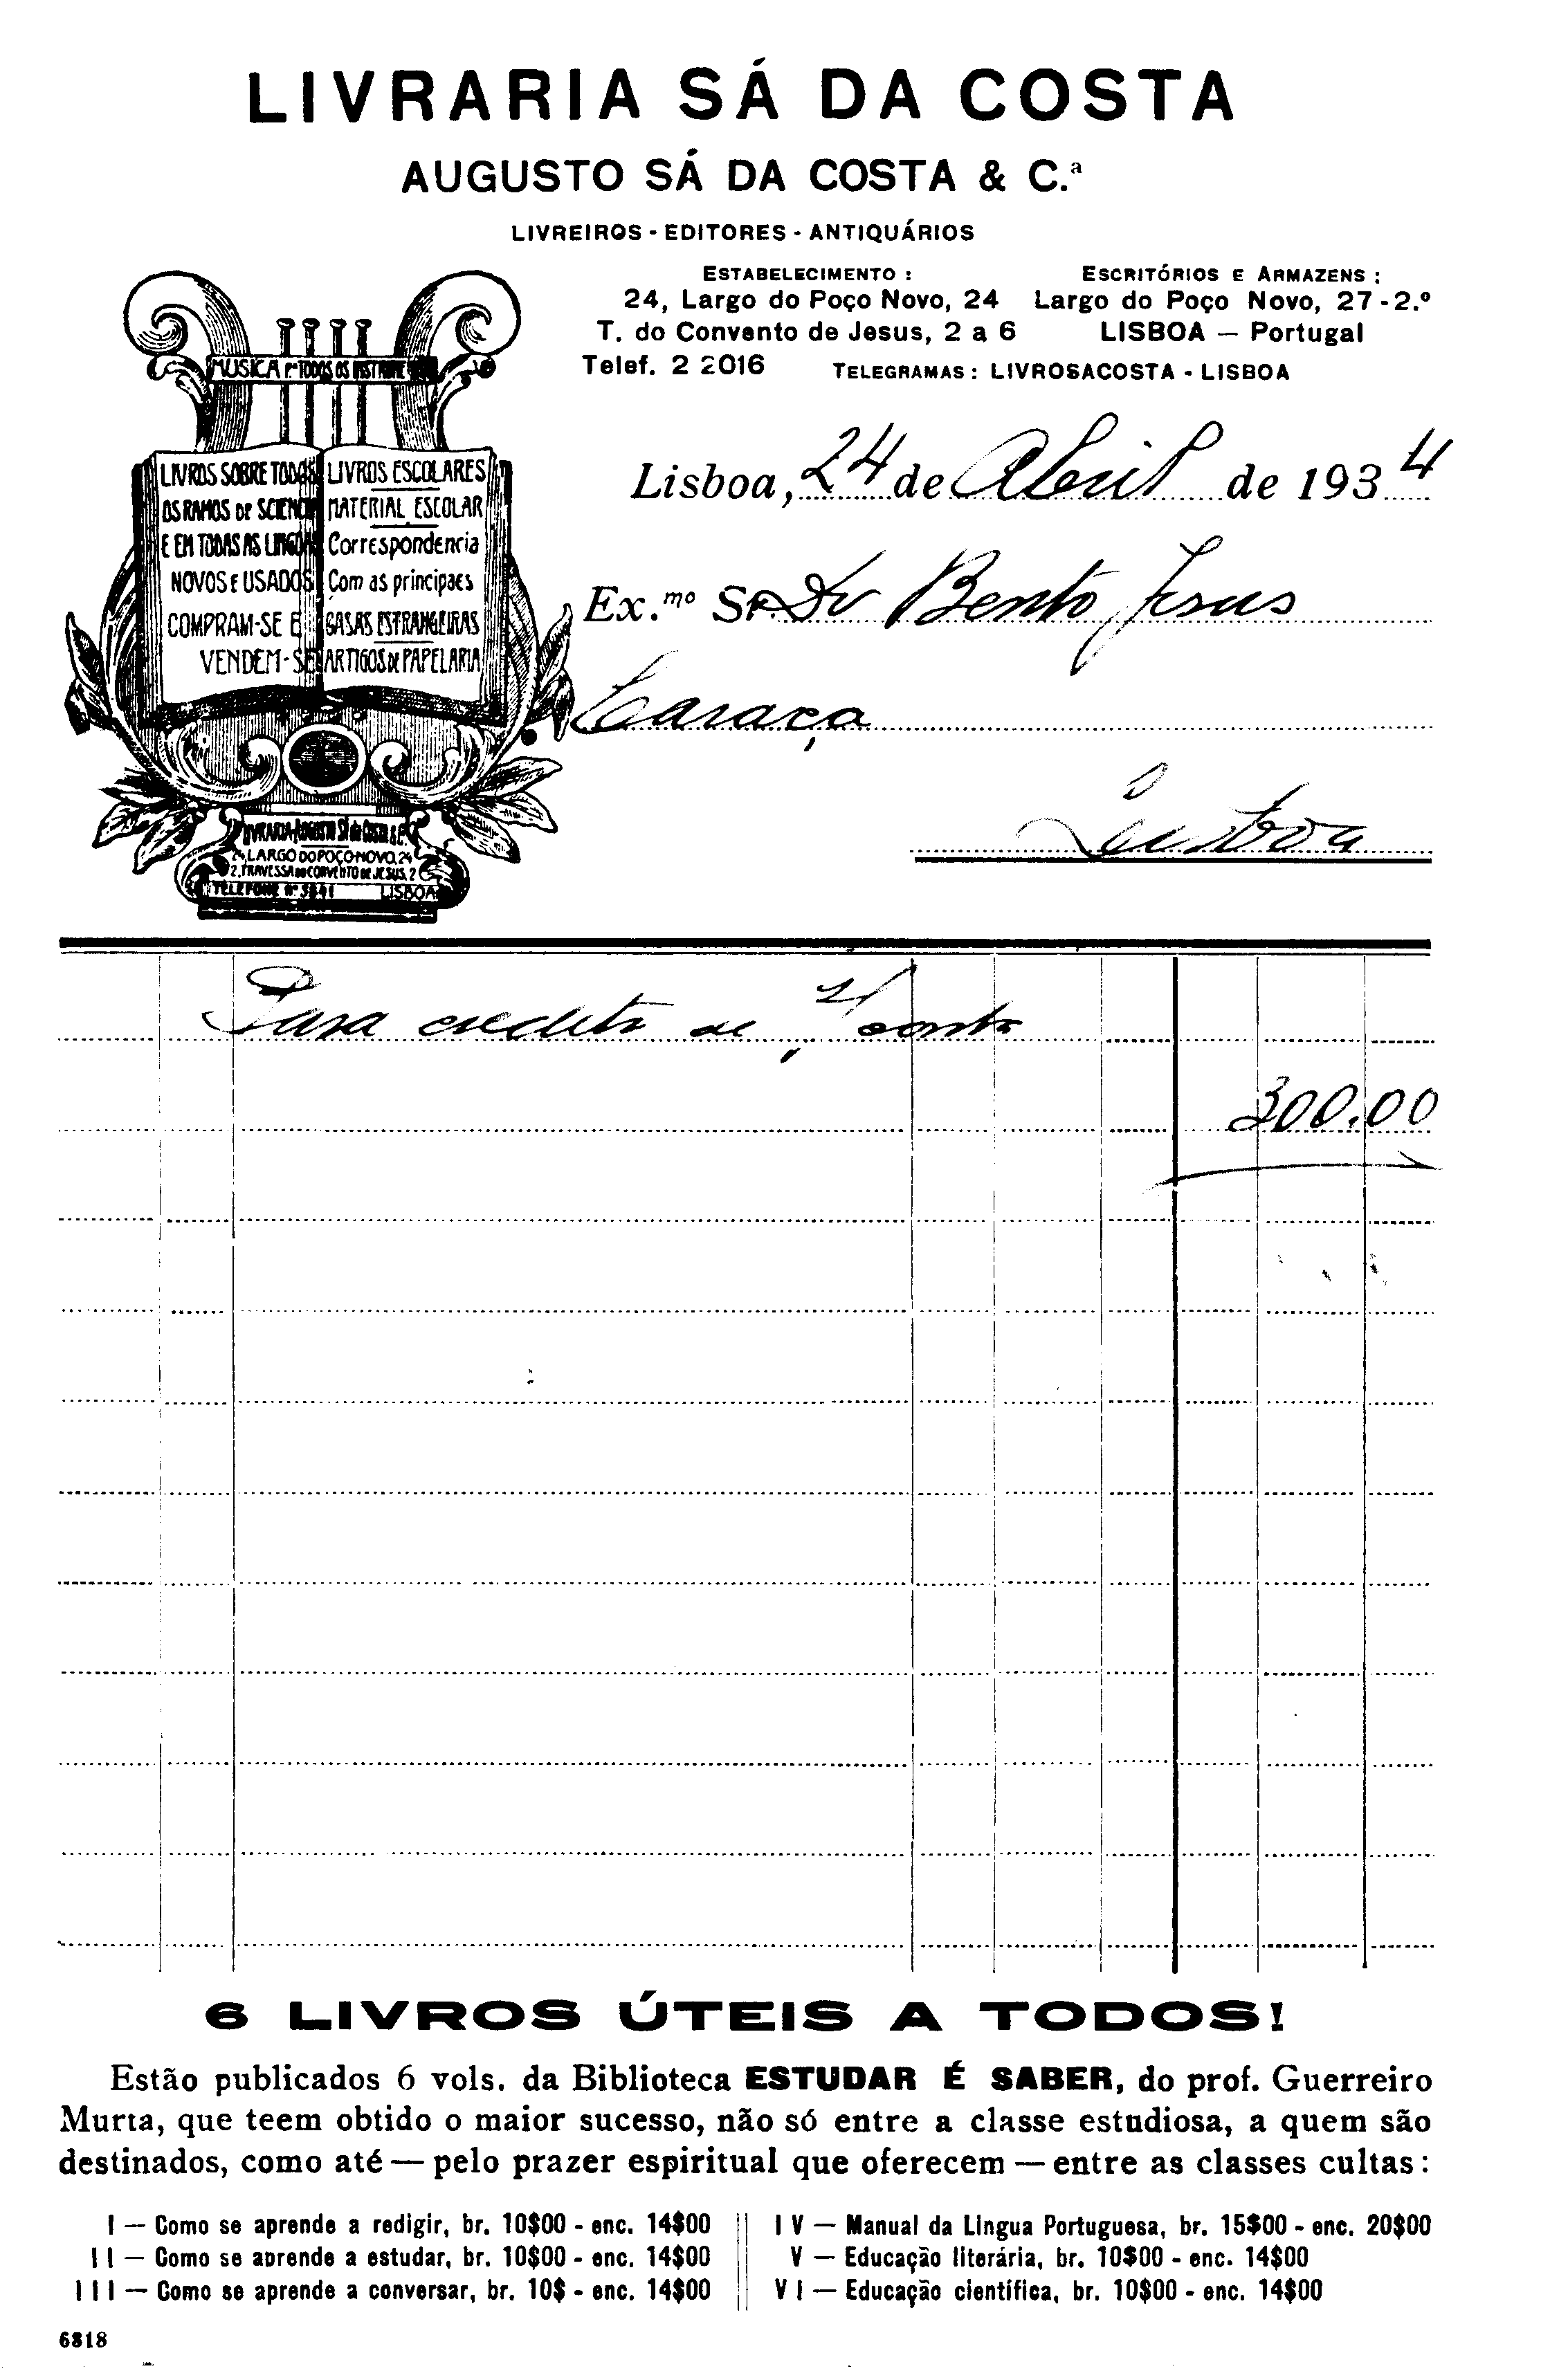 LIVRARIA SÁ DA COSTA
AUGUSTO SÁ DA COSTA & C.ª
LIVREIROS - EDITORES - ANTIQUÁRIOS
ESTABELECIMENTO :
24, Largo do Poço Novo, 24
T. do Convento de Jesus, 2 a 6
ESCRITÓRIOS E ARMAZENS :
Largo do Poço Novo, 27-2.º
LISBOA — Portugal
Telef. 2 2016
TELEGRAMAS : LIVROSACOSTA - LISBOA
MUSICA Pª TODOS OS INSTRUME
LIVROS SOBRE TODOS
OS RAMOS DE SCIENC
E EM TODAS AS LINGUA
NOVOS E USADOS
COMPRAM-SE E
VENDEM-SE
LIVROS ESCOLARES
MATERIAL ESCOLAR
Correspondencia
Com as principaes
CASAS ESTRANGEIRAS
ARTIGOS DE PAPELARIA
LIVRARIA AUGUSTO SÁ da COSTA & C.ª
24, LARGO DO POÇO NOVO, 24
2, TRAVESSA DO CONVENTO DE JESUS, 2
TELEFONE Nº LISBOA
Lisboa, 24 de Abril de 1934
Ex.mo Sr. Dr Bento Jesus
Caraça
Lisboa
Para credito de s/ conta
300.00
6 LIVROS ÚTEIS A TODOS!
Estão publicados 6 vols. da Biblioteca ESTUDAR É SABER, do prof. Guerreiro
Murta, que teem obtido o maior sucesso, não só entre a classe estudiosa, a quem são
destinados, como até — pelo prazer espiritual que oferecem — entre as classes cultas :
I — Como se aprende a redigir, br. 10$00 - enc. 14$00
II — Como se aprende a estudar, br. 10$00 - enc. 14$00
III — Como se aprende a conversar, br. 10$ - enc. 14$00
IV — Manual da Lingua Portuguesa, br. 15$00 - enc. 20$00
V — Educação literária, br. 10$00 - enc. 14$00
VI — Educação científica, br. 10$00 - enc. 14$00
6818